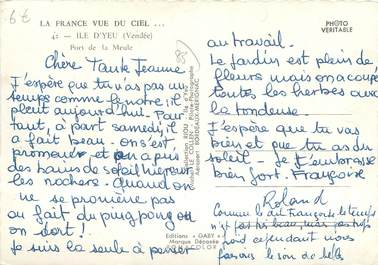 6€
LA FRANCE VUE DU CIEL ...
4: — ILE D'YEU (Vendée)
Port de la Meule
PHOTO
VERITABLE
Chère Tante Jeanne
J'espère que tu n'as pas un
temps comme le notre; il
pleut aujourd'hui. Pour
tant, à part samedi, il
a fait beau. on s'est
promené et on a pris
des bains de soleil hier sur
les rochers. Quand on
ne se promène pas
on fait du ping pong ou
on dort!
Je suis la seule à penser
au travail.
Le jardin est plein de
fleurs mais on a coupé
toutes les herbes aux
la tondeuse.
J'espère que tu vas
bien et que tu as du
soleil - je t'embrasse
bien fort. Françoise
Roland
Comme le dit Françoise le temps
n'est pas très beau, mais pas trop
froid cependant nous
faisons le soir de belles
Editions "GABY"
Marque Déposée